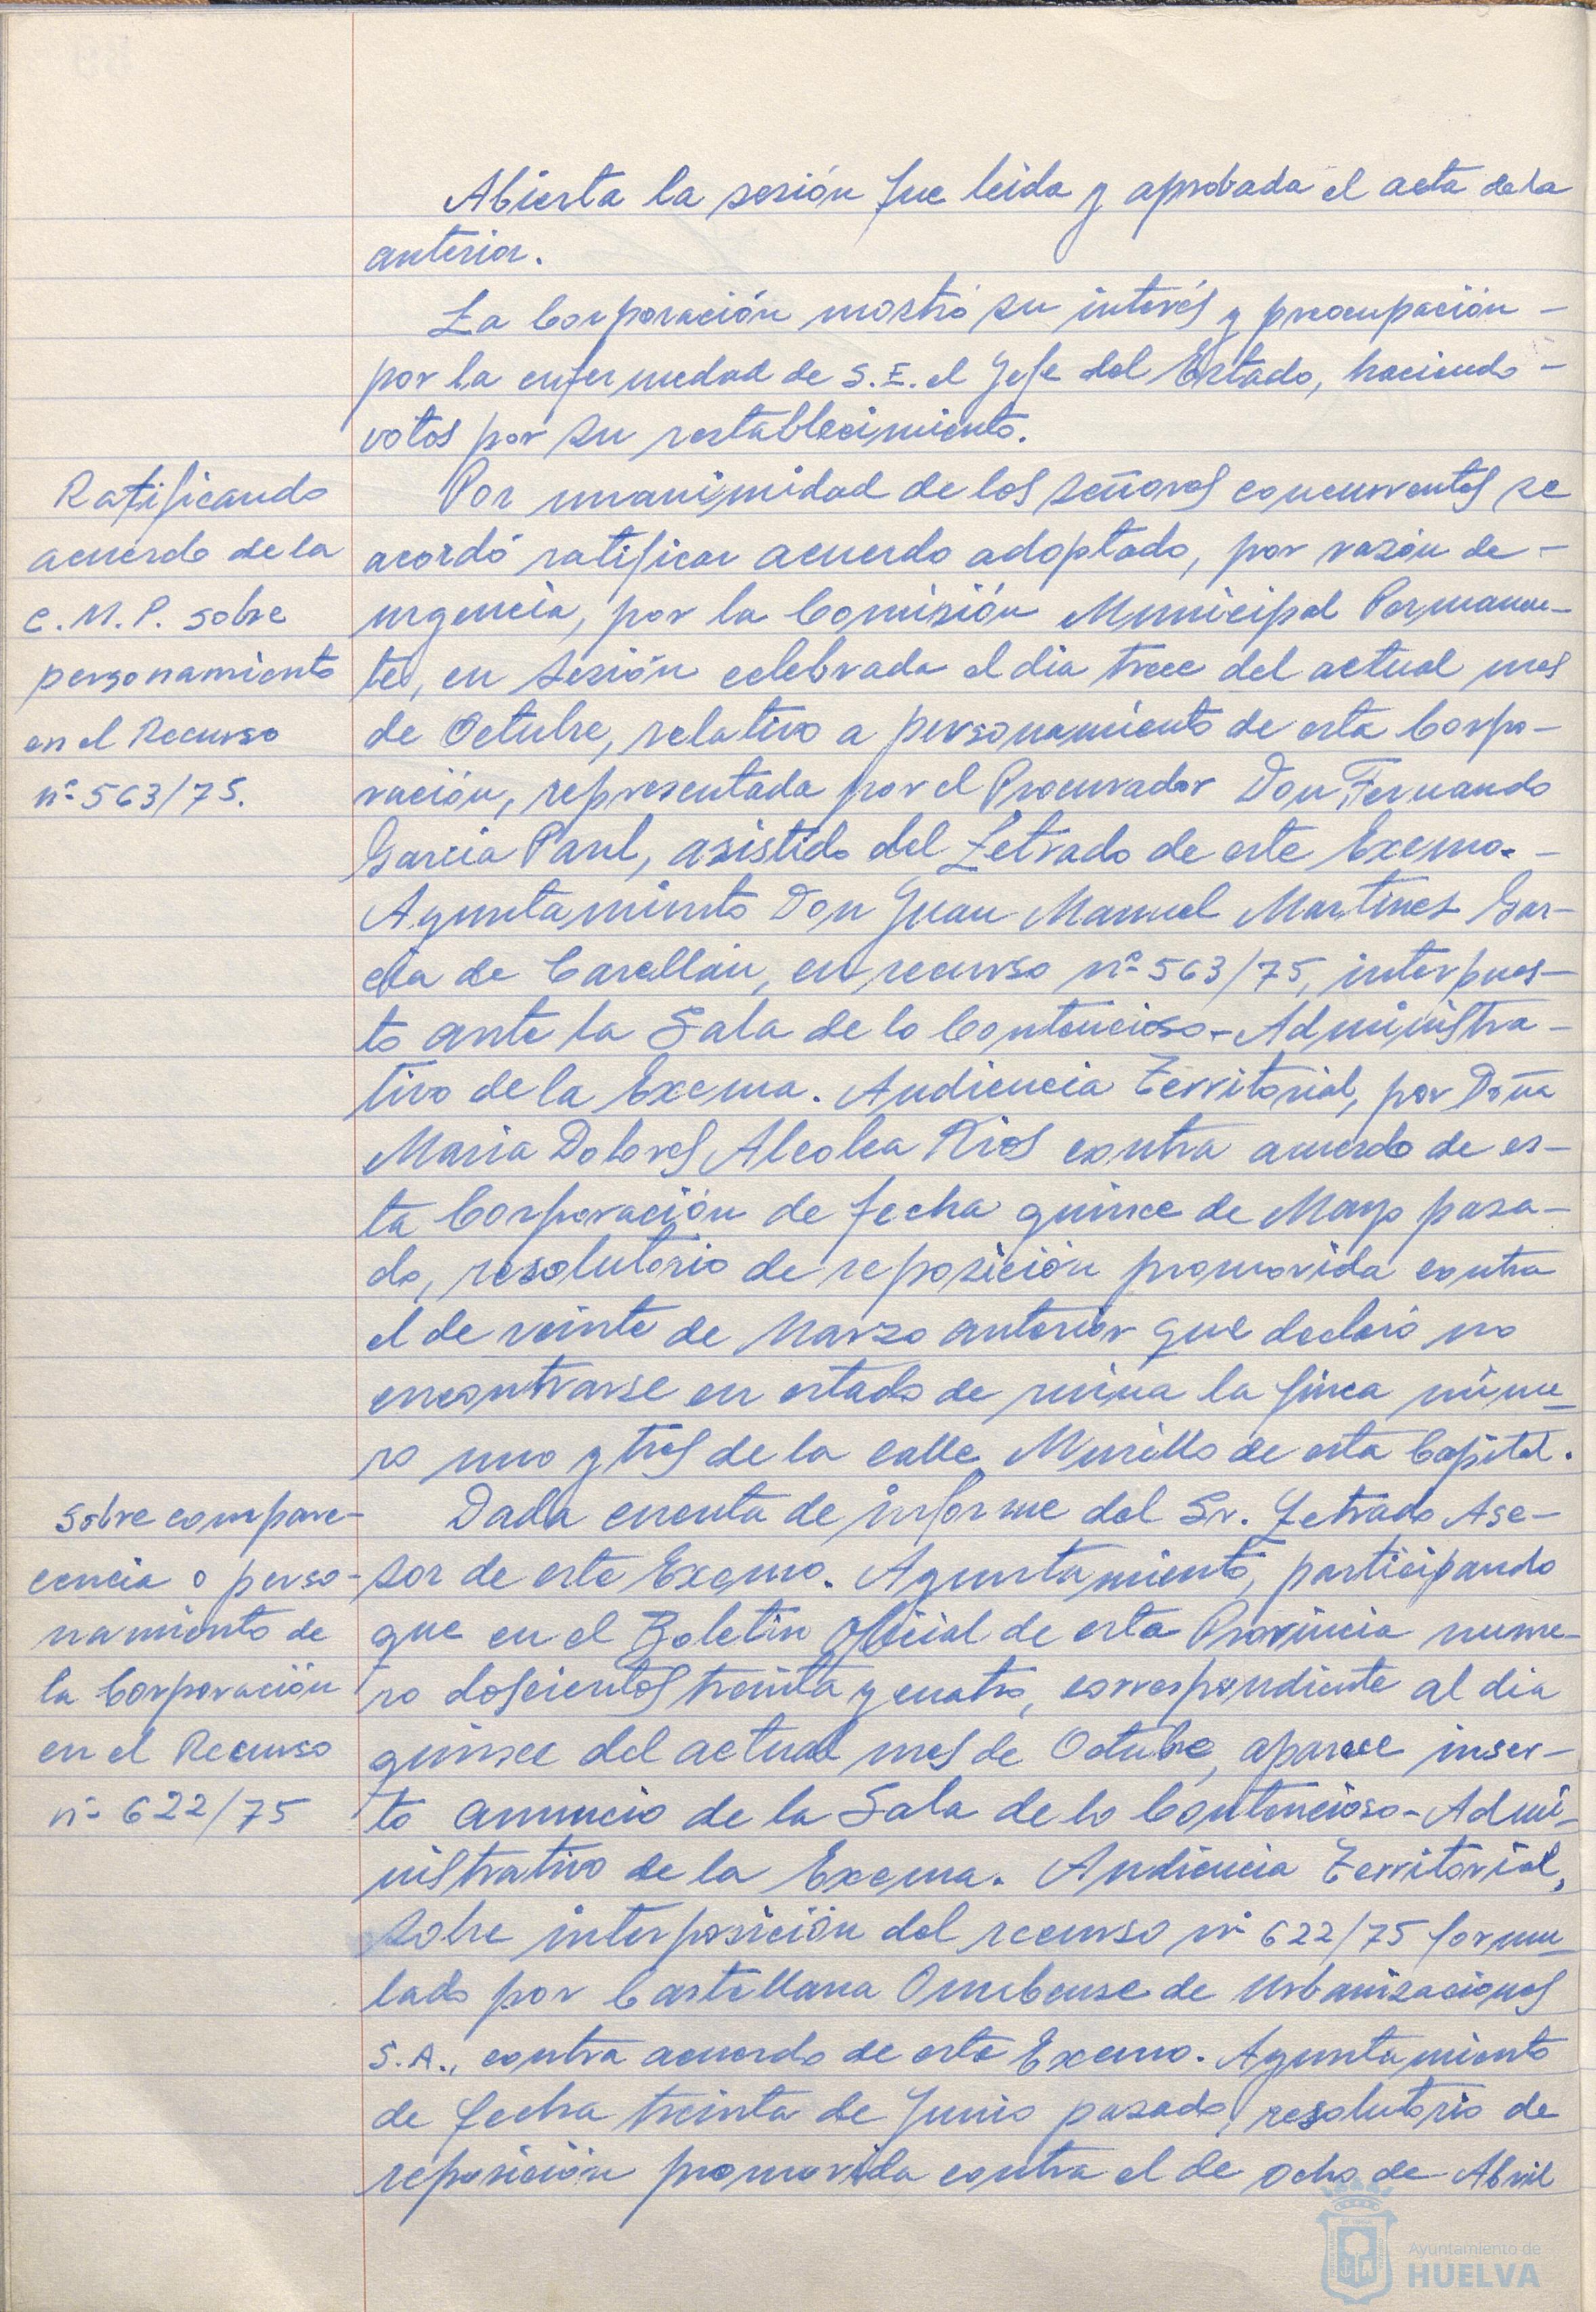 Abierta la sesión fue leida y aprobada el acta de la
anterior.
La Corporación mostró su interés y preocupación -
por la enfermedad de S.E. el Jefe del Estado, haciendo -
votos por su restablecimiento.
Ratificando
acuerdo de la
C.M.P. sobre
personamiento
en el Recurso
nº 563/75.
Por unanimidad de los señores concurrentes se
acordó ratificar acuerdo adoptado, por razón de -
urgencia, por la Comisión Municipal Permanen-
te, en sesión celebrada el dia trece del actual mes
de Octubre, relativo a personamiento de esta Corpo-
ración, representada por el Procurador Don Fernando
Garcia Paul, asistido del Letrado de este Excmo. -
Ayuntamiento Don Juan Manuel Martinez Gar-
cia de Casellán, en recurso nº 563/75, interpues-
to ante la Sala de lo Contencioso-Administra-
tivo de la Excma. Audiencia Territorial, por Doña
Maria Dolores Alcolea Rios contra acuerdo de es-
ta Corporación de fecha quince de Mayo pasa-
do, resolutorio de reposición promovida contra
el de veinte de Marzo anterior que declaró no
encontrarse en estado de ruina la finca núme-
ro uno y tres de la calle Murillo de esta Capital.
Sobre compare-
cencia o perso-
namiento de
la Corporación
en el Recurso
nº 622/75
Dada cuenta de informe del Sr. Letrado Ase-
sor de este Excmo. Ayuntamiento, participando
que en el Boletin Oficial de esta Provincia núme-
ro doscientos treinta y cuatro, correspondiente al dia
quince del actual mes de Octubre, aparece inser-
to anuncio de la Sala de lo Contencioso-Admi-
nistrativo de la Excma. Audiencia Territorial,
sobre interposición del recurso nº 622/75 formu-
lado por Castellana Onubense de Urbanizaciones
S.A., contra acuerdo de este Excmo. Ayuntamiento
de fecha treinta de Junio pasado, resolutorio de
reposición promovida contra el de ocho de Abril
Ayuntamiento de
HUELVA